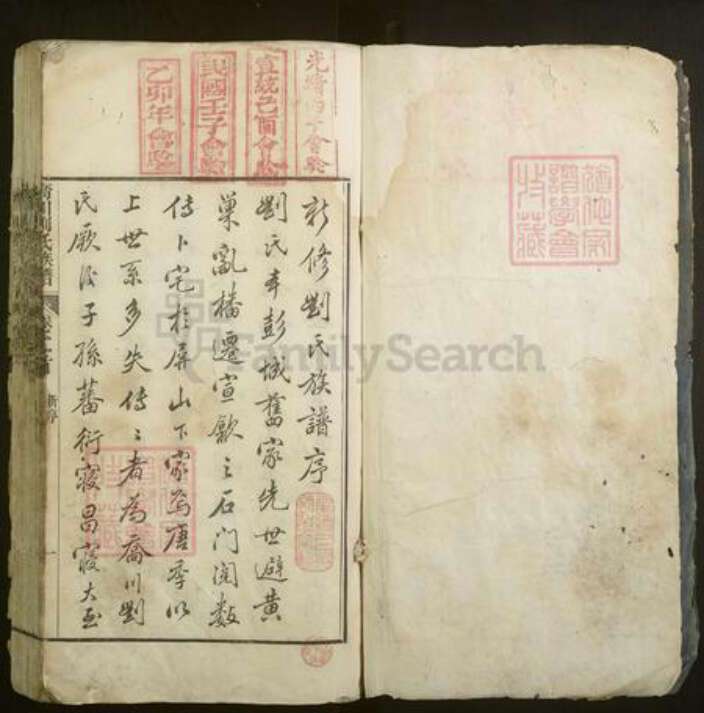 光緒丙子會驗
宣統己酉會驗
民國壬子會驗
乙卯年會驗
新修劉氏族譜序
劉氏本彭城舊家先世避黃
巢亂播遷宣歙之石門閱數
傳卜宅於屏山下家焉唐季以
上世系多失傳〻者為喬川劉
氏厥後子孫蕃衍寖昌寖大至
劉氏族譜
新序
譜學會
收藏
FamilySearch